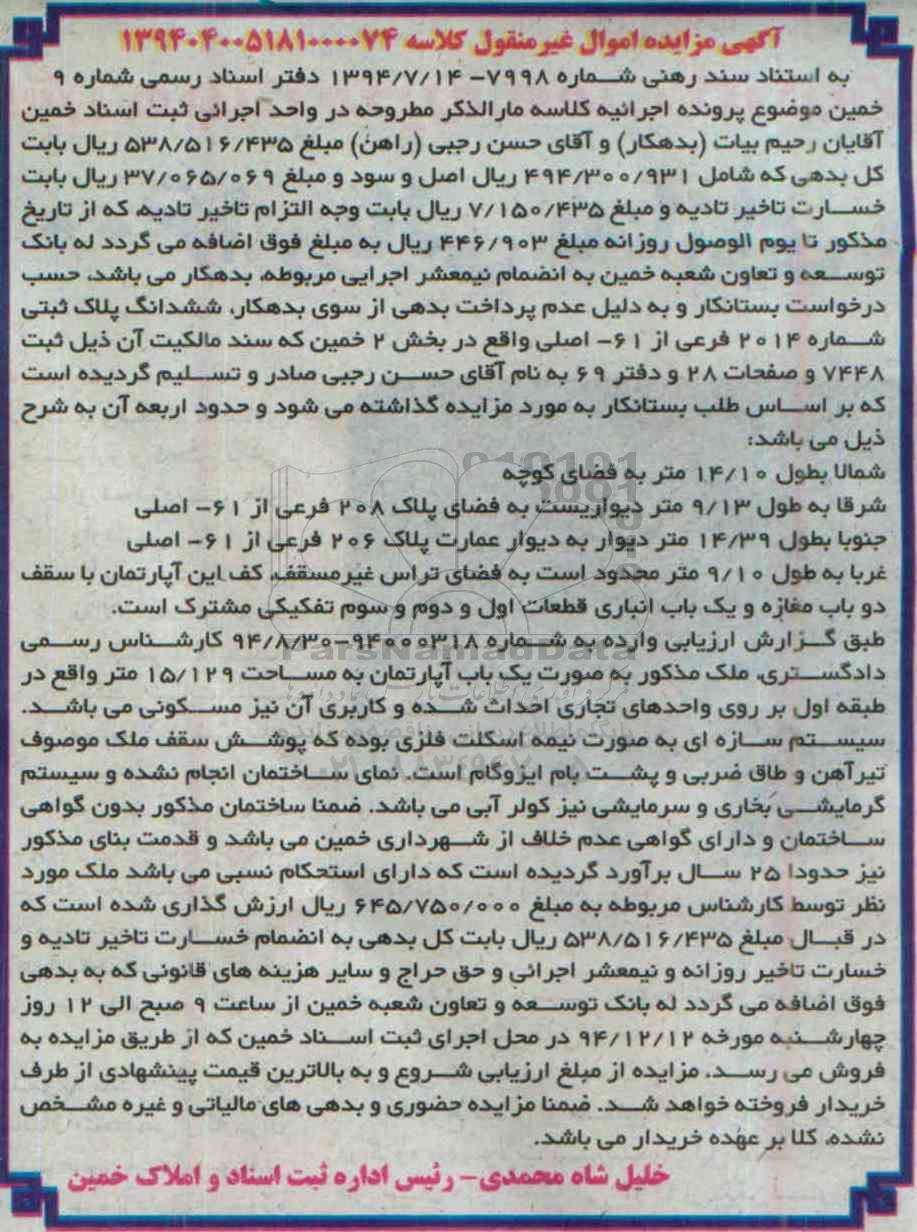 آگهی مزایده اموال غیرمنقول کلاسه ۱۳۹۴۰۴۰۰۵۱۸۱۰۰۰۰۷۴
به استناد سند رهنی شماره ۷۹۹۸- ۱۳۹۴/۷/۱۴ دفتر اسناد رسمی شماره ۹
خمین موضوع پرونده اجرائیه کلاسه مارالذکر مطروحه در واحد اجرائی ثبت اسناد خمین
آقایان رحیم بیات (بدهکار) و آقای حسن رجبی (راهن) مبلغ ۵۳۸/۵۱۶/۴۳۵ ریال بابت
کل بدهی که شامل ۴۹۴/۳۰۰/۹۳۱ ریال اصل و سود و مبلغ ۳۷/۰۶۵/۰۶۹ ریال بابت
خسارت تاخیر تادیه و مبلغ ۷/۱۵۰/۴۳۵ ریال بابت وجه التزام تاخیر تادیه، که از تاریخ
مذکور تا یوم الوصول روزانه مبلغ ۴۴۶/۹۰۳ ریال به مبلغ فوق اضافه می گردد له بانک
توسعه و تعاون شعبه خمین به انضمام نیمعشر اجرایی مربوطه، بدهکار می باشد، حسب
درخواست بستانکار و به دلیل عدم پرداخت بدهی از سوی بدهکار، ششدانگ پلاک ثبتی
شماره ۲۰۱۴ فرعی از ۶۱- اصلی واقع در بخش ۲ خمین که سند مالکیت آن ذیل ثبت
۷۴۴۸ و صفحات ۲۸ و دفتر ۶۹ به نام آقای حسن رجبی صادر و تسلیم گردیده است
که بر اساس طلب بستانکار به مورد مزایده گذاشته می شود و حدود اربعه آن به شرح
ذیل می باشد:
شمالا بطول ۱۴/۱۰ متر به فضای کوچه
شرقا به طول ۹/۱۳ متر دیواریست به فضای پلاک ۲۰۸ فرعی از ۶۱- اصلی
جنوبا بطول ۱۴/۳۹ متر دیوار به دیوار عمارت پلاک ۲۰۶ فرعی از ۶۱- اصلی
غربا به طول ۹/۱۰ متر محدود است به فضای تراس غیرمسقف، کف این آپارتمان با سقف
دو باب مغازه و یک باب انباری قطعات اول و دوم و سوم تفکیکی مشترک است.
طبق گزارش ارزیابی وارده به شماره ۹۴۰۰۰۳۱۸-۹۴/۸/۳۰ کارشناس رسمی
دادگستری، ملک مذکور به صورت یک باب آپارتمان به مساحت ۱۵/۱۲۹ متر واقع در
طبقه اول بر روی واحدهای تجاری احداث شده و کاربری آن نیز مسکونی می باشد.
سیستم سازه ای به صورت نیمه اسکلت فلزی بوده که پوشش سقف ملک موصوف
تیرآهن و طاق ضربی و پشت بام ایزوگام است. نمای ساختمان انجام نشده و سیستم
گرمایشی بخاری و سرمایشی نیز کولر آبی می باشد. ضمنا ساختمان مذکور بدون گواهی
ساختمان و دارای گواهی عدم خلاف از شهرداری خمین می باشد و قدمت بنای مذکور
نیز حدودا ۲۵ سال برآورد گردیده است که دارای استحکام نسبی می باشد ملک مورد
نظر توسط کارشناس مربوطه به مبلغ ۶۴۵/۷۵۰/۰۰۰ ریال ارزش گذاری شده است که
در قبال مبلغ ۵۳۸/۵۱۶/۴۳۵ ریال بابت کل بدهی به انضمام خسارت تاخیر تادیه و
خسارت تاخیر روزانه و نیمعشر اجرائی و حق حراج و سایر هزینه های قانونی که به بدهی
فوق اضافه می گردد له بانک توسعه و تعاون شعبه خمین از ساعت ۹ صبح الی ۱۲ روز
چهارشنبه مورخه ۹۴/۱۲/۱۲ در محل اجرای ثبت اسناد خمین که از طریق مزایده به
فروش می رسد. مزایده از مبلغ ارزیابی شروع و به بالاترین قیمت پیشنهادی از طرف
خریدار فروخته خواهد شد. ضمنا مزایده حضوری و بدهی های مالیاتی و غیره مشخص
نشده، کلا بر عهده خریدار می باشد.
خلیل شاه محمدی- رئیس اداره ثبت اسناد و املاک خمین
ParsNamadData